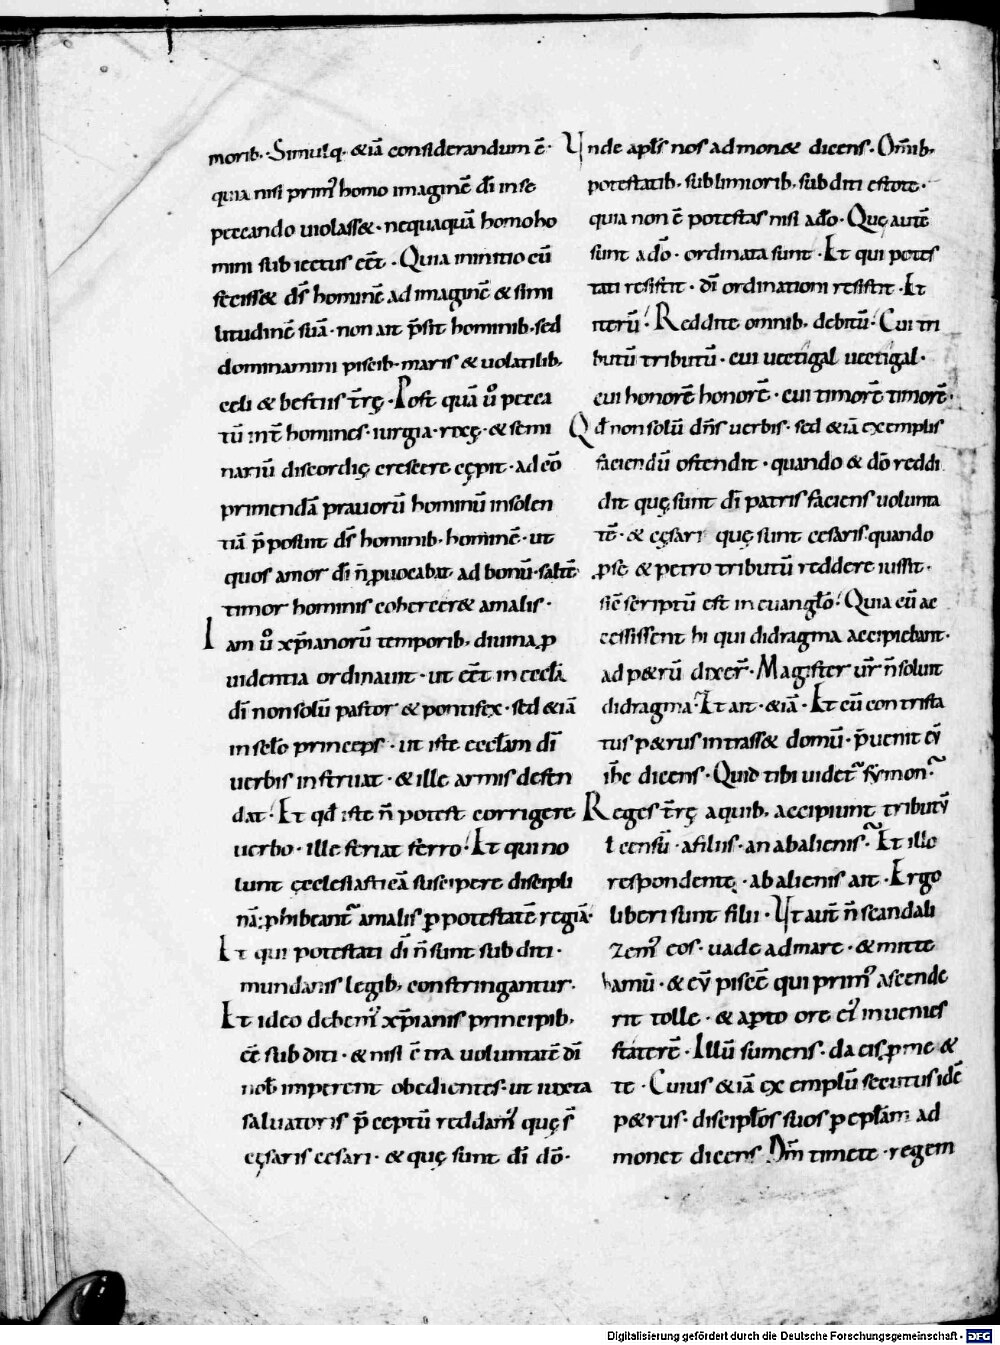 morib;. Simulq. &iā considerandum ē.
quia nisi prim' homo imaginē dī in se
peccando uiolass&. nequaquā homo ho
mini subiectus eēt. Quia in initio eū
feciss& ds̄ hominē ad imaginē & simi
litudinē suā. non ait p̄sit hominib. sed
dominamini piscib. maris & uolatilib;
celi & bestiis t̄rę. Post quā ů pecca
tū int̄ homines. iurgia. rixę. & semi
nariū discordię crescere cępit. ad cō
primendā prauorū hominū insolen
tiā p̄posuit ds̄ hominib. hominē. ut
quos amor dī n̄ ꝓuocabat ad bonū. saltē
timor hominis coherceret& amalis.
Iam ů xp̄ianorū temporib; diuina ꝓ
uidentia ordinauit. ut eēt in eccła
dī non solū pastor & pontifex. sed &iā
in scło princeps. ut iste eccłam dī
uerbis instruat. & ille armis defen
dat. Et qđ iste n̄ potest corrigere
uerbo. ille feriat ferro. Et qui no
lunt ęcclesiasticā suscipere discipli
nā. ꝓhibeant̄ amalis ꝑ potestatē regiā.
Et qui potestati dī n̄ sunt subditi.
mundanis legib; constringantur.
Et ideo debem' xp̄ianis principib;
eē subditi. & nisi c̄tra uoluntatē dī
nob̄ imperent obedientes. ut iuxta
saluatoris p̄ceptū reddam' quę s̄
cęsaris cesari. & quę sunt dī dō.
Unde apłs nos admon& dicens. Om̄ib;
potestatib. sublimiorib. subditi estote.
quia non ē potestas nisi adō. Quę autē
sunt adō. ordinata sunt. Et qui potes
tati resistit. dī ordinationi resistit. Et
iterū. Reddite omnib. debitū. Cui tri
butū tributū. cui uectigal uectigal.
cui honorē honorē. cui timorē timorē.
Qđ non solū dn̄s uerbis. sed &iā exemplis
faciendū ostendit. quando & dō reddi
dit quę sunt dī patris faciens uolunta
tē. & cęsari quę sunt cesaris. quando
ꝑ se & petro tributū reddere iussit.
sic̄ scriptū est in euangło. Quia cū ac
cessissent hi qui didragma accipiebant.
ad p&rū dixer̄. Magister ur̄ n̄ soluit
didragma. Et ait. &iā. Et cū contrista
tus p&rus intrass& domū. p̄uenit eū
ih̄c dicens. Quid tibi uidet̄ symon.
Reges t̄rę aquib; accipiunt tributū
ł censū. afiliis. an abalienis. Et ille
respondente. abalienis ait. Ergo
liberi sunt filii. Ut aut̄ n̄ scandali
zem' eos. uade admare. & mitte
hamū. & eū piscē qui prim' ascende
rit tolle. & aꝑto ore ei' inuenies
staterē. Illū sumens. da eis. ꝓ me &
te. Cuius &iā exemplū secutus idē
p&rus. discipłos suos ꝑ epłam ad
monet dicens. Dm̄ timete. regem
Digitalisierung gefördert durch die Deutsche Forschungsgemeinschaft - DFG